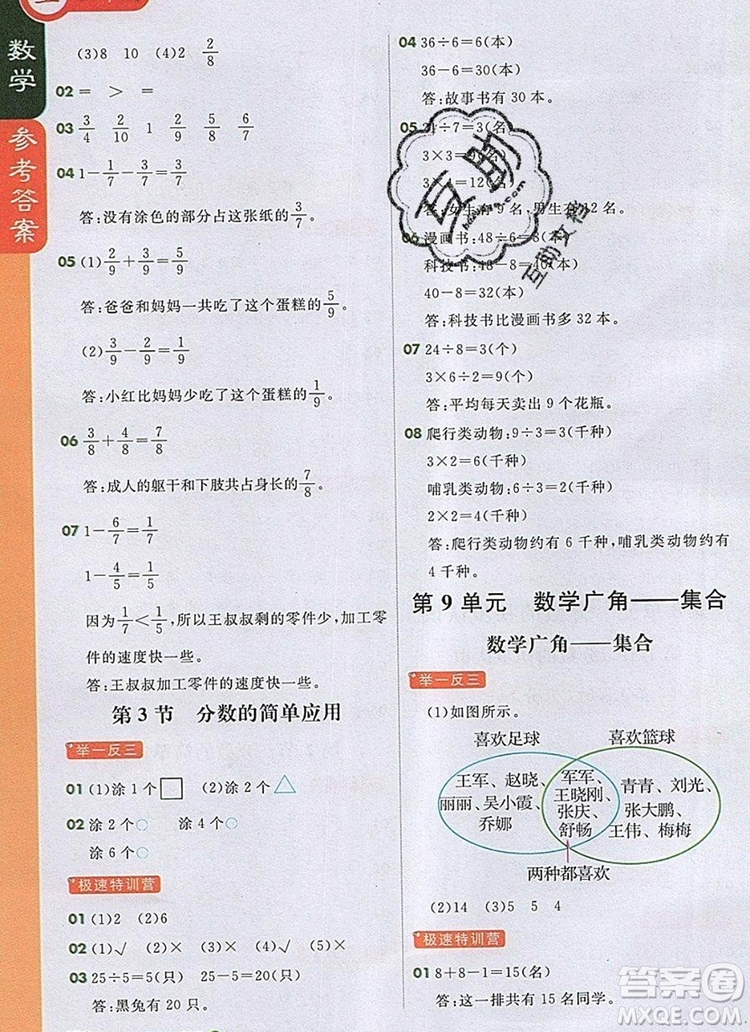 数学
参考答案
(3)8 10 (4)2 2/8
02 = > =
03 3/4 2/10 1 2/7 5/8 6/7
04 1-1/7-3/7=3/7
答:没有涂色的部分占这张纸的3/7。
05 (1)2/9+3/9=5/9
答:爸爸和妈妈一共吃了这个蛋糕的5/9。
(2)3/9-2/9=1/9
答:小红比妈妈少吃了这个蛋糕的1/9。
06 3/8+4/8=7/8
答:成人的躯干和下肢共占身长的7/8。
07 1-6/7=1/7
1-4/5=1/5
因为1/7<1/5,所以王叔叔剩的零件少,加工零
件的速度快一些。
答:王叔叔加工零件的速度快一些。
第3节 分数的简单应用
举一反三
01 (1)涂1个□ (2)涂1个△
02 涂2个○ 涂4个○
涂6个○
极速特训营
01 (1)2 (2)6
02 (1)√ (2)× (3)× (4)√
03 25÷5=5(只) 25-5=20(只)
答:黑兔有20只。
04 36÷6=6(本)
36-6=30(本)
答:故事书有30本。
05 21÷7=3(名)
3×3=9(名)
3×4=12(名)
答:女生有9名,男生有12名。
06 漫画书:48÷6=8(本)
科技书:48-8=40(本)
40-8=32(本)
答:科技书比漫画书多32本。
07 24÷8=3(个)
3×6÷2=9(个)
答:平均每天卖出9个花瓶。
08 爬行类动物:9÷3=3(千种)
3×2=6(千种)
哺乳类动物:6÷3=2(千种)
2×2=4(千种)
答:爬行类动物约有6千种,哺乳类动物约有
4千种。
第9单元 数学广角——集合
数学广角——集合
举一反三
(1)如图所示。
喜欢足球 喜欢篮球
王军、赵晓、
丽丽、吴小霞、
乔娜
军军、
王晓刚、
张庆、
舒畅
青青、刘光、
张大鹏、
王伟、梅梅
两种都喜欢
(2)14 (3)5 5 4
极速特训营
01 8+8-1=15(名)
答:这一排共有15名同学。
互助
互助文档
答案圈
MXQE.COM